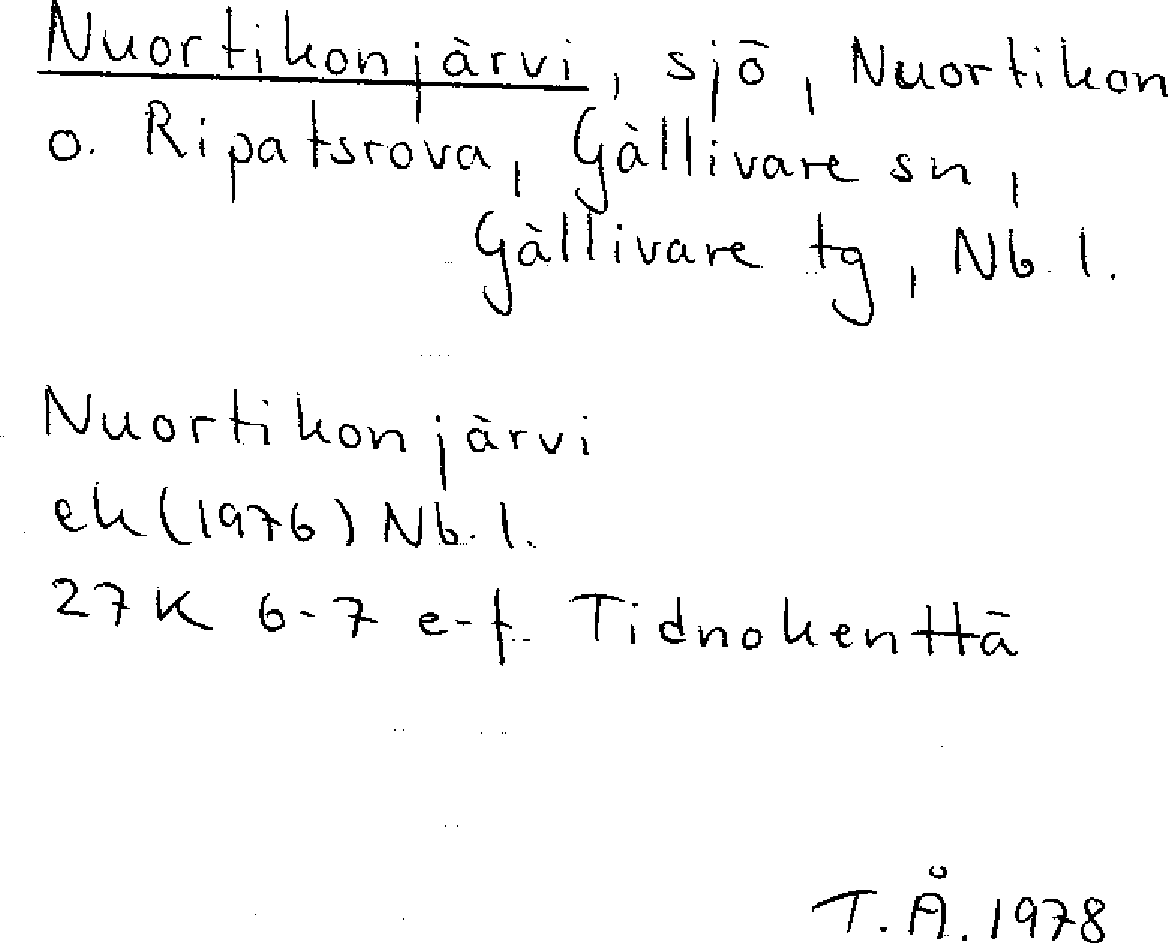 Nuortikonjärvi, sjö, Nuortikon
o. Ripatsrova, Gällivare sn,
Gällivare tg, Nb. l.
Nuortikonjärvi
ek (1976) Nb. l.
27K 6-7 e-f Tidnokenttä
T.Å. 1978